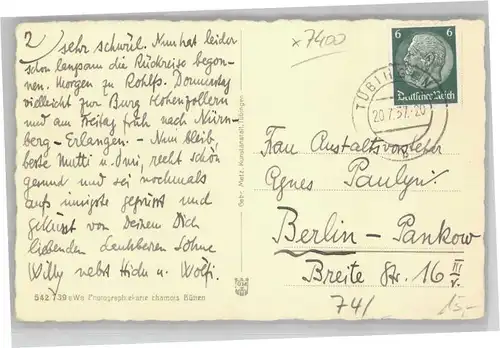 2) sehr schwül. Nun hat leider
schon langsam die Rückreise begon-
nen. Morgen zu Rohlfs. Donnerstag
vielleicht zur Burg Hohenzollern
und am Freitag früh nach Nürn-
berg-Erlangen. - Nun bleib
beste Mutti u. Omi, recht schön
gesund und sei nochmals
aufs innigste gegrüsst und
geküsst von Deinem Dich
liebenden dankbaren Sohne
Willy nebst Heidi u. Wölfi.
542 739 Photographiekarte chamois Bütten
Gebr. Metz, Kunstanstalt, Tübingen
x7400
6 6
Deutsches Reich
TÜBINGEN
20.7.37.-20
b
Frau Anstaltsvorsteher
Agnes Paulyn.
Berlin-Pankow
Breite Str. 16 III
v.
74/
15,-